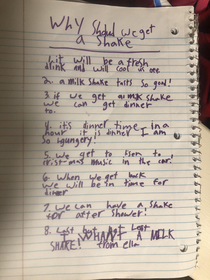 Why Should we get
a Shake
1. it will be a fresh
drink and will cool us one
2. a milk shake tasts so good!
3. if we get a milk shake
we can get dinner
to.
4. it's dinner time in a
hour it is dinner I am
so hungery!
5. We get to lisen to
music in the car!
6. When we get back
we will be in time for
dinner
7. we can have a shake
for after shower!
8. Last but Not Least
SHAKE! A MILK
from ella